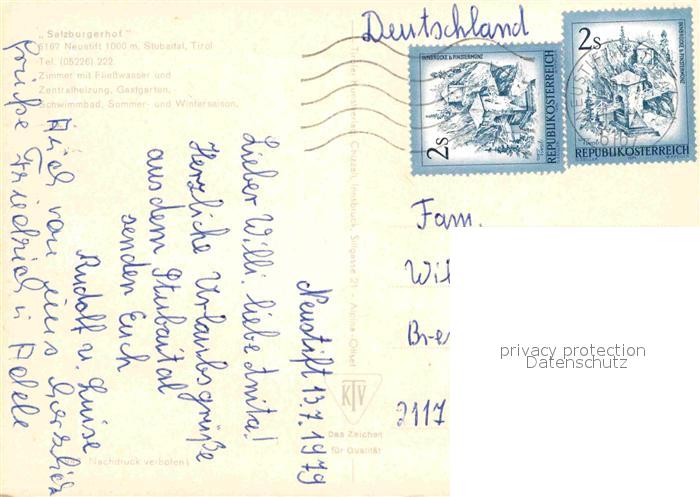 „Salzburgerhof“
6167 Neustift 1000 m, Stubaital, Tirol
Tel. (05226) 222
Zimmer mit Fließwasser und
Zentralheizung, Gastgarten,
Schwimmbad, Sommer- und Wintersaison.
Deutschland
INNBRÜCKE B. FINSTERMÜNZ
2s
REPUBLIK ÖSTERREICH
INNBRÜCKE B. FINSTERMÜNZ
2s
REPUBLIK ÖSTERREICH
Neustift 13.7.1979
Lieber Willi, liebe Anita!
Herzliche Urlaubsgrüße
aus dem Stubaital
senden Euch
Rudolf u. Luise
Auch von uns herzliche
Grüße Friedrich u. Adele
Fam.
Wil
Bre
2117
Tiroler Kunstverlag Chizzali, Innsbruck, Sillgasse 21 - Alpina-Offset
KTV
Das Zeichen
für Qualität
Nachdruck verboten!
privacy protection
Datenschutz